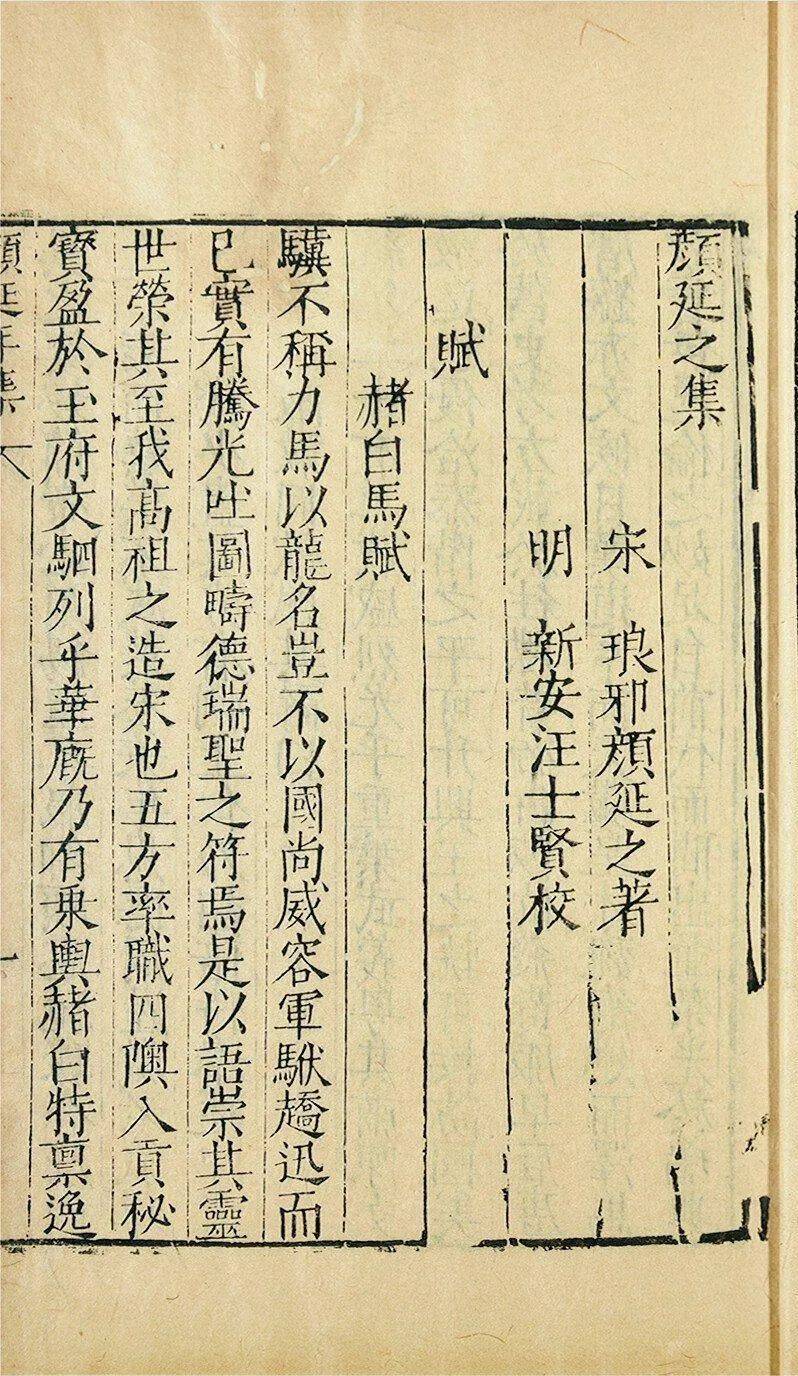 顏延之集
宋　琅邪顏延之著
明　新安汪士賢校
賦
赭白馬賦
驥不稱力馬以龍名豈不以國尚威容軍駥趫迅而
已實有騰光吐圖疇德瑞聖之符焉是以語崇其靈
世榮其至我高祖之造宋也五方率職四隩入貢秘
寳盈於玉府文駟列乎華廐乃有乗輿赭白特禀逸
顏延年集
一